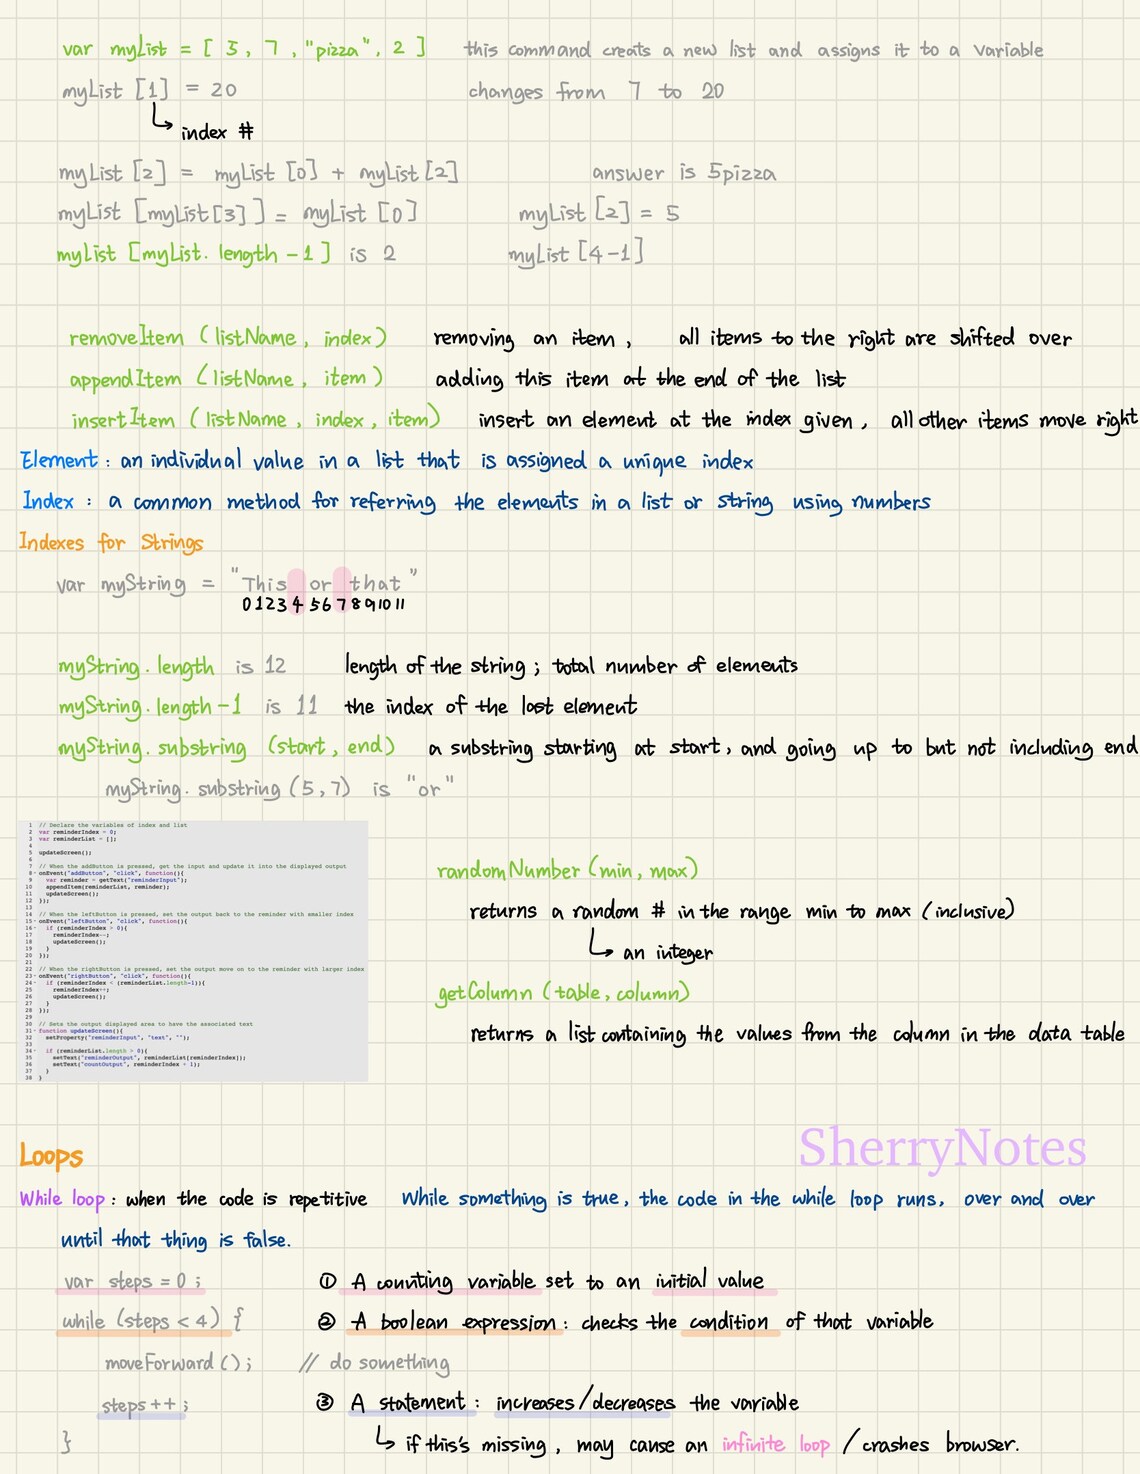 var myList = [ 5, 7, "pizza", 2 ] this command creats a new list and assigns it to a variable
myList [1] = 20 changes from 7 to 20
index #
myList [2] = myList [0] + myList [2] answer is 5pizza
myList [myList[3]] = myList [0] myList [2] = 5
myList [myList. length - 1 ] is 2 myList [4-1]
removeItem (listName, index) removing an item, all items to the right are shifted over
appendItem (listName, item) adding this item at the end of the list
insertItem (listName, index, item) insert an element at the index given, all other items move right
Element: an individual value in a list that is assigned a unique index
Index: a common method for referring the elements in a list or string using numbers
Indexes for Strings
var myString = "This or that"
0 1 2 3 4 5 6 7 8 9 10 11
myString. length is 12 length of the string; total number of elements
myString. length -1 is 11 the index of the last element
myString. substring (start, end) a substring starting at start, and going up to but not including end
myString. substring (5,7) is "or"
1 // Declare the variables of index and list
2 var reminderIndex = 0;
3 var reminderList = [];
4
5 updateScreen();
6
7 // When the addButton is pressed, get the input and update it into the displayed output
8 onEvent("addButton", "click", function(){
9 var reminder = getText("reminderInput");
10 appendItem(reminderList, reminder);
11 updateScreen();
12 });
13
14 // When the leftButton is pressed, set the output back to the reminder with smaller index
15 onEvent("leftButton", "click", function(){
16 if (reminderIndex > 0){
17 reminderIndex--;
18 updateScreen();
19 }
20 });
21
22 // When the rightButton is pressed, set the output move on to the reminder with larger index
23 onEvent("rightButton", "click", function(){
24 if (reminderIndex < (reminderList.length-1)){
25 reminderIndex++;
26 updateScreen();
27 }
28 });
29
30 // Sets the output displayed area to have the associated text
31 function updateScreen(){
32 setProperty("reminderInput", "text", "");
33
34 if (reminderList.length > 0){
35 setText("reminderOutput", reminderList[reminderIndex]);
36 setText("countOutput", reminderIndex + 1);
37 }
38 }
randomNumber (min, max)
returns a random # in the range min to max (inclusive)
an integer
getColumn (table, column)
returns a list containing the values from the column in the data table
SherryNotes
Loops
While loop: when the code is repetitive While something is true, the code in the while loop runs, over and over
until that thing is false.
var steps = 0; ① A counting variable set to an initial value
while (steps < 4) { ② A boolean expression: checks the condition of that variable
moveForward (); // do something
steps ++; ③ A statement: increases/decreases the variable
} if this's missing, may cause an infinite loop / crashes browser.